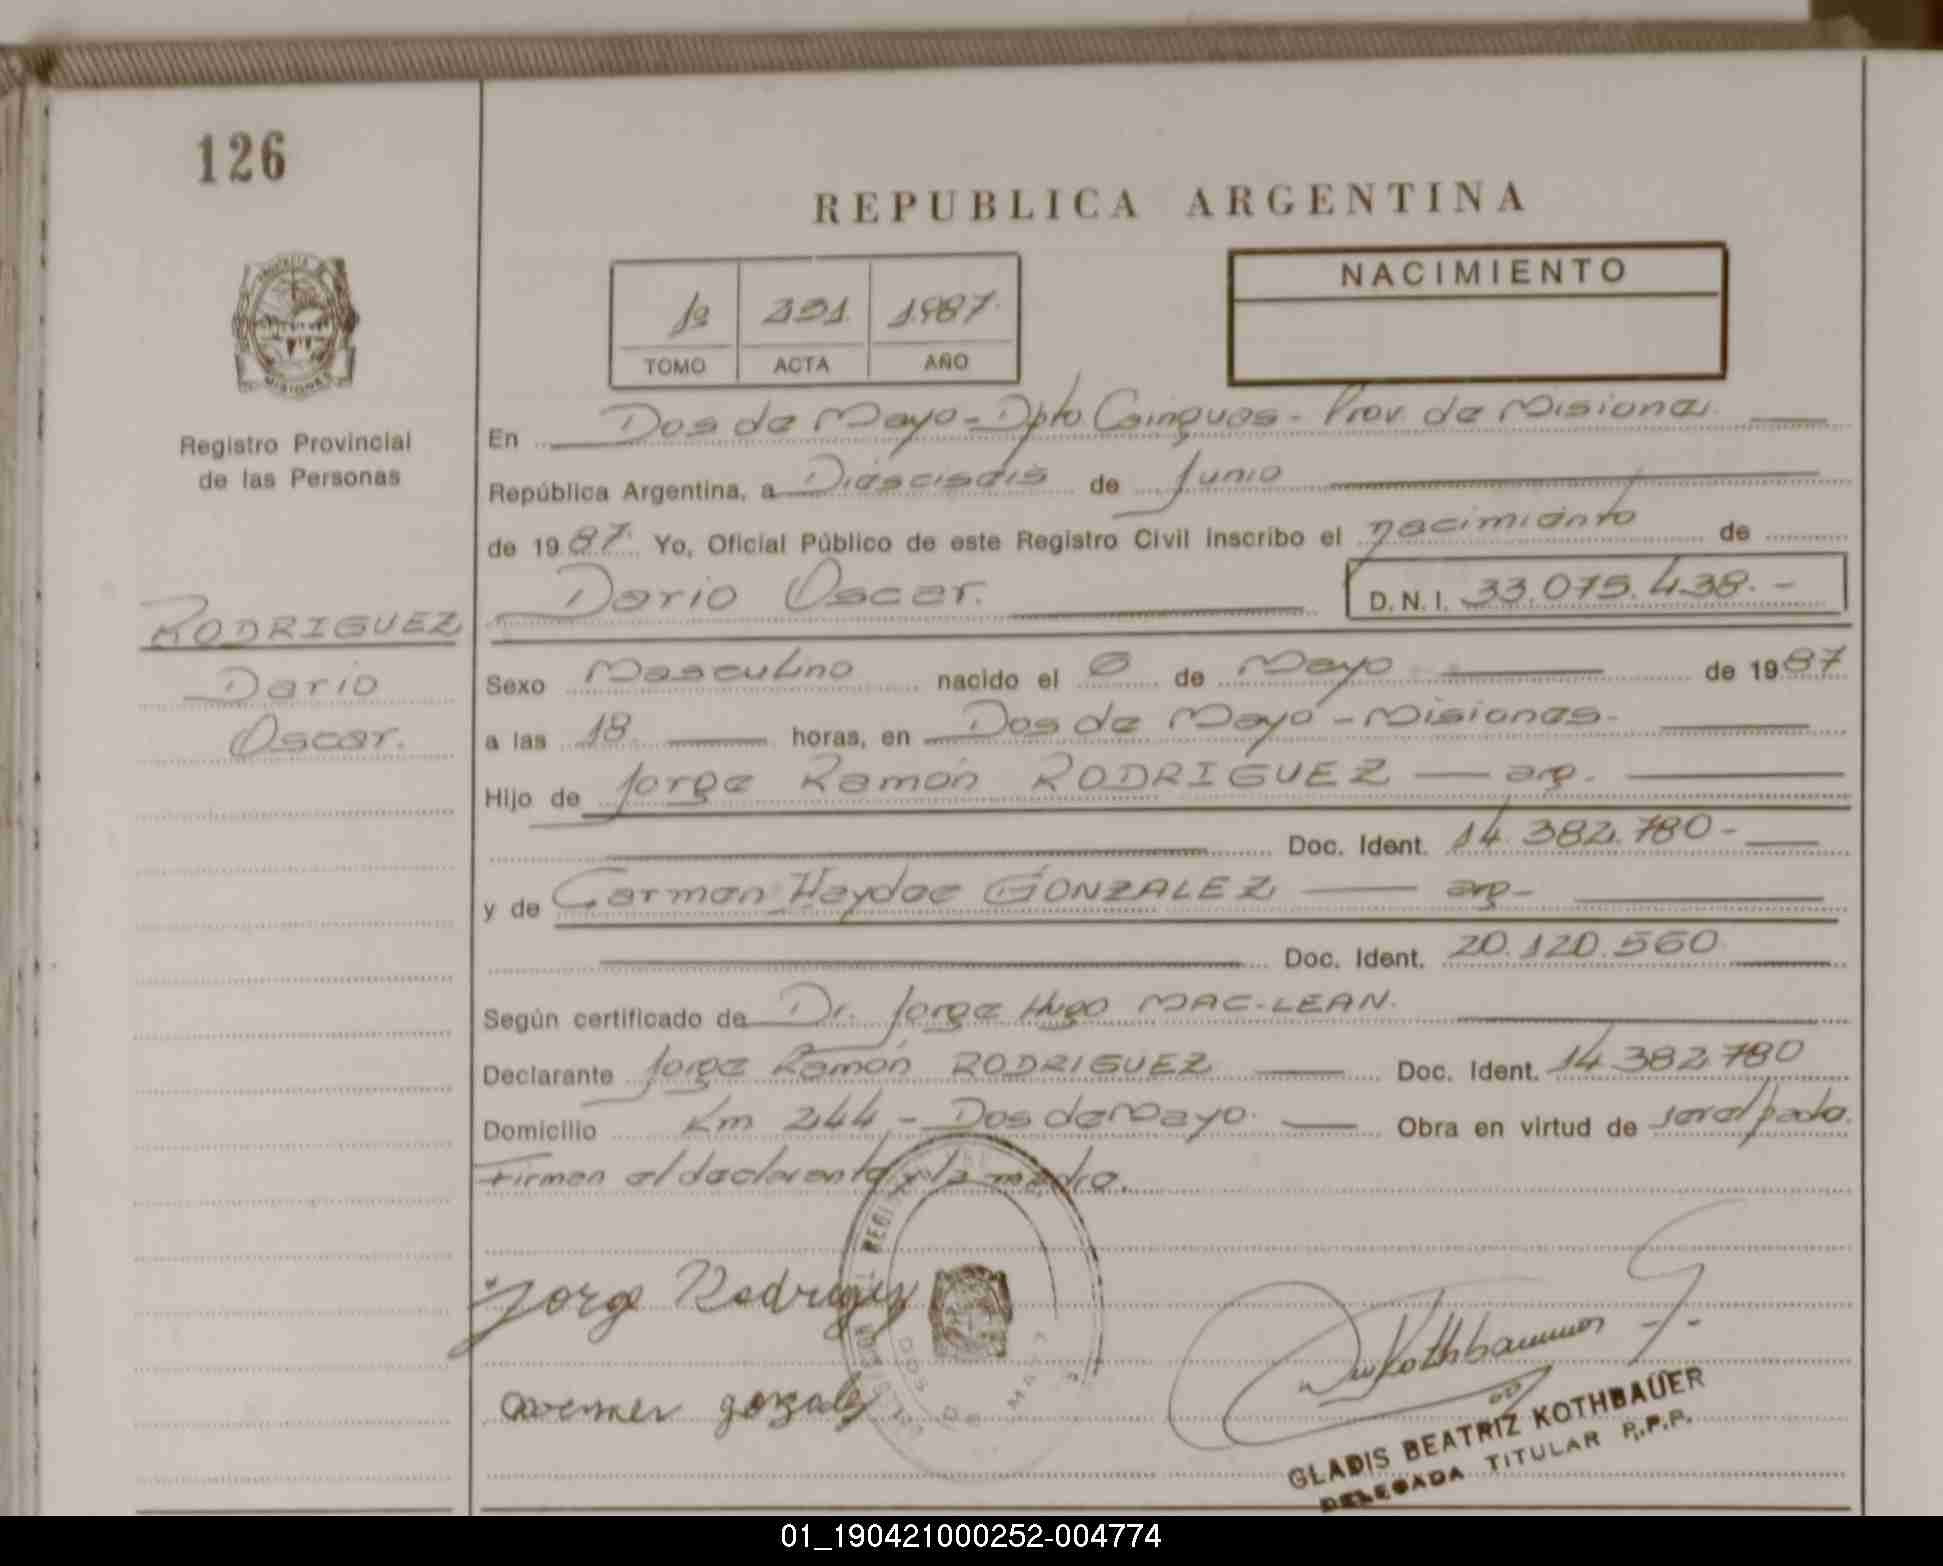 126
REPUBLICA ARGENTINA
NACIMIENTO
1º 1987.
TOMO ACTA AÑO
MISIONES
Registro Provincial
de las Personas
En Dos de Mayo - Dpto Cainguas - Prov. de Misiones.
República Argentina, a Dieciseis de Junio
de 1987. Yo, Oficial Público de este Registro Civil inscribo el nacimiento de
Dario Oscar. D. N. I. 33.075.438.-
RODRIGUEZ
Dario
Oscar.
Sexo Masculino nacido el de Mayo de 1987
a las 18 horas, en Dos de Mayo - Misiones.
Hijo de Jorge Ramón RODRIGUEZ — arg.
Doc. Ident. 14.382.780-
y de Carmen Haydee GONZALEZ — arg-
Doc. Ident. 20.120.560
Según certificado de Dr. Jorge Hugo MAC-LEAN.
Declarante Jorge Ramón RODRIGUEZ Doc. Ident. 14.382.780
Domicilio Km 244 - Dos de Mayo. Obra en virtud de ser el padre.
Firman el declarante y la madre.
Jorge Rodriguez
gonzalez
DOS DE MAYO
Kothbauer
GLADIS BEATRIZ KOTHBAUER
DELEGADA TITULAR R.P.P.
01_190421000252-004774